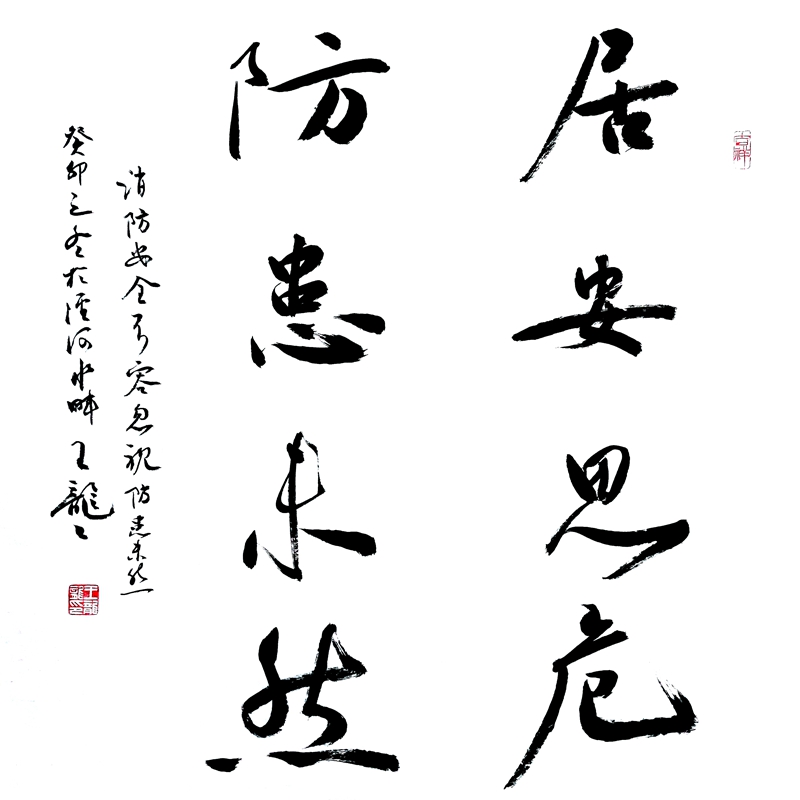 居安思危
防患未然
消防安全不容忽视防患未然
癸卯之冬於河水畔 王龍々
吉祥
王龍龍印